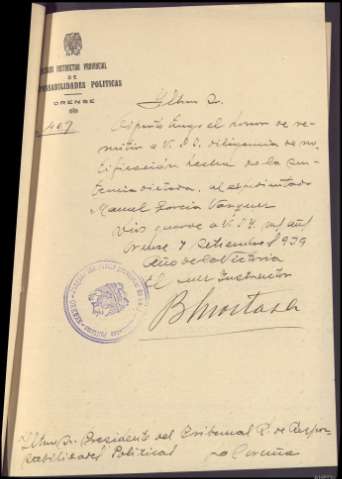 JUZGADO INSTRUCTOR PROVINCIAL
DE
RESPONSABILIDADES POLITICAS
ORENSE
Iltmo Sr.
Adjunto tengo el honor de re-
mitir a V.S.I. diligencia de no-
tificacion hecha de la sen-
tencia dictada, al expedientado
Manuel Garcia Vazquez
Dios guarde a V.S.I. m. añ
Orense 7 Setiembre 1939
Año de la Victoria
El Juez Instructor
Iltmo Sr. Presidente del Tribunal R. de Respon-
sabilidades Politicas La Coruña